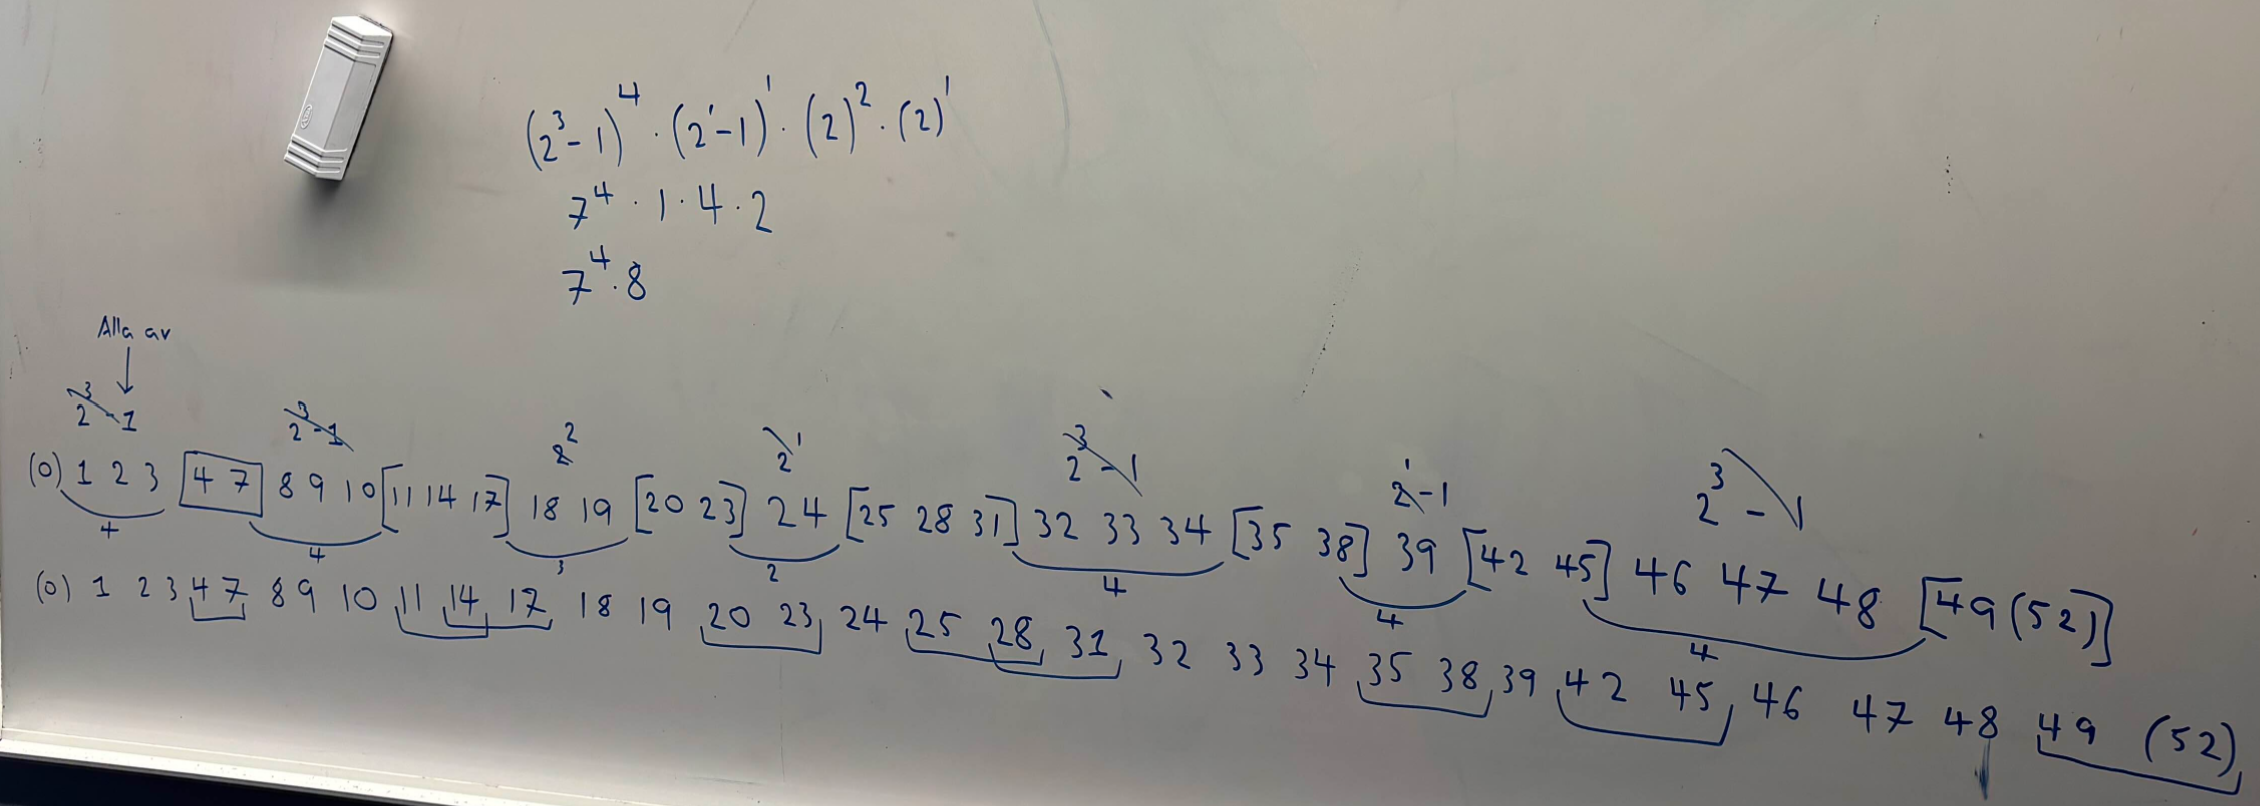 (2³-1)⁴ · (2¹-1)¹ · (2)² · (2)¹
7⁴ · 1 · 4 · 2
7⁴ · 8
Alla av
2³-1 2³-1 2² 2¹ 2³-1 2¹-1 2³-1
(0) 1 2 3 [4 7] 8 9 10 [11 14 17] 18 19 [20 23] 24 [25 28 31] 32 33 34 [35 38] 39 [42 45] 46 47 48 [49 (52)]
4 4 3 2 4 4 4
(0) 1 2 3 4 7 8 9 10 11 14 17 18 19 20 23 24 25 28 31 32 33 34 35 38 39 42 45 46 47 48 49 (52)